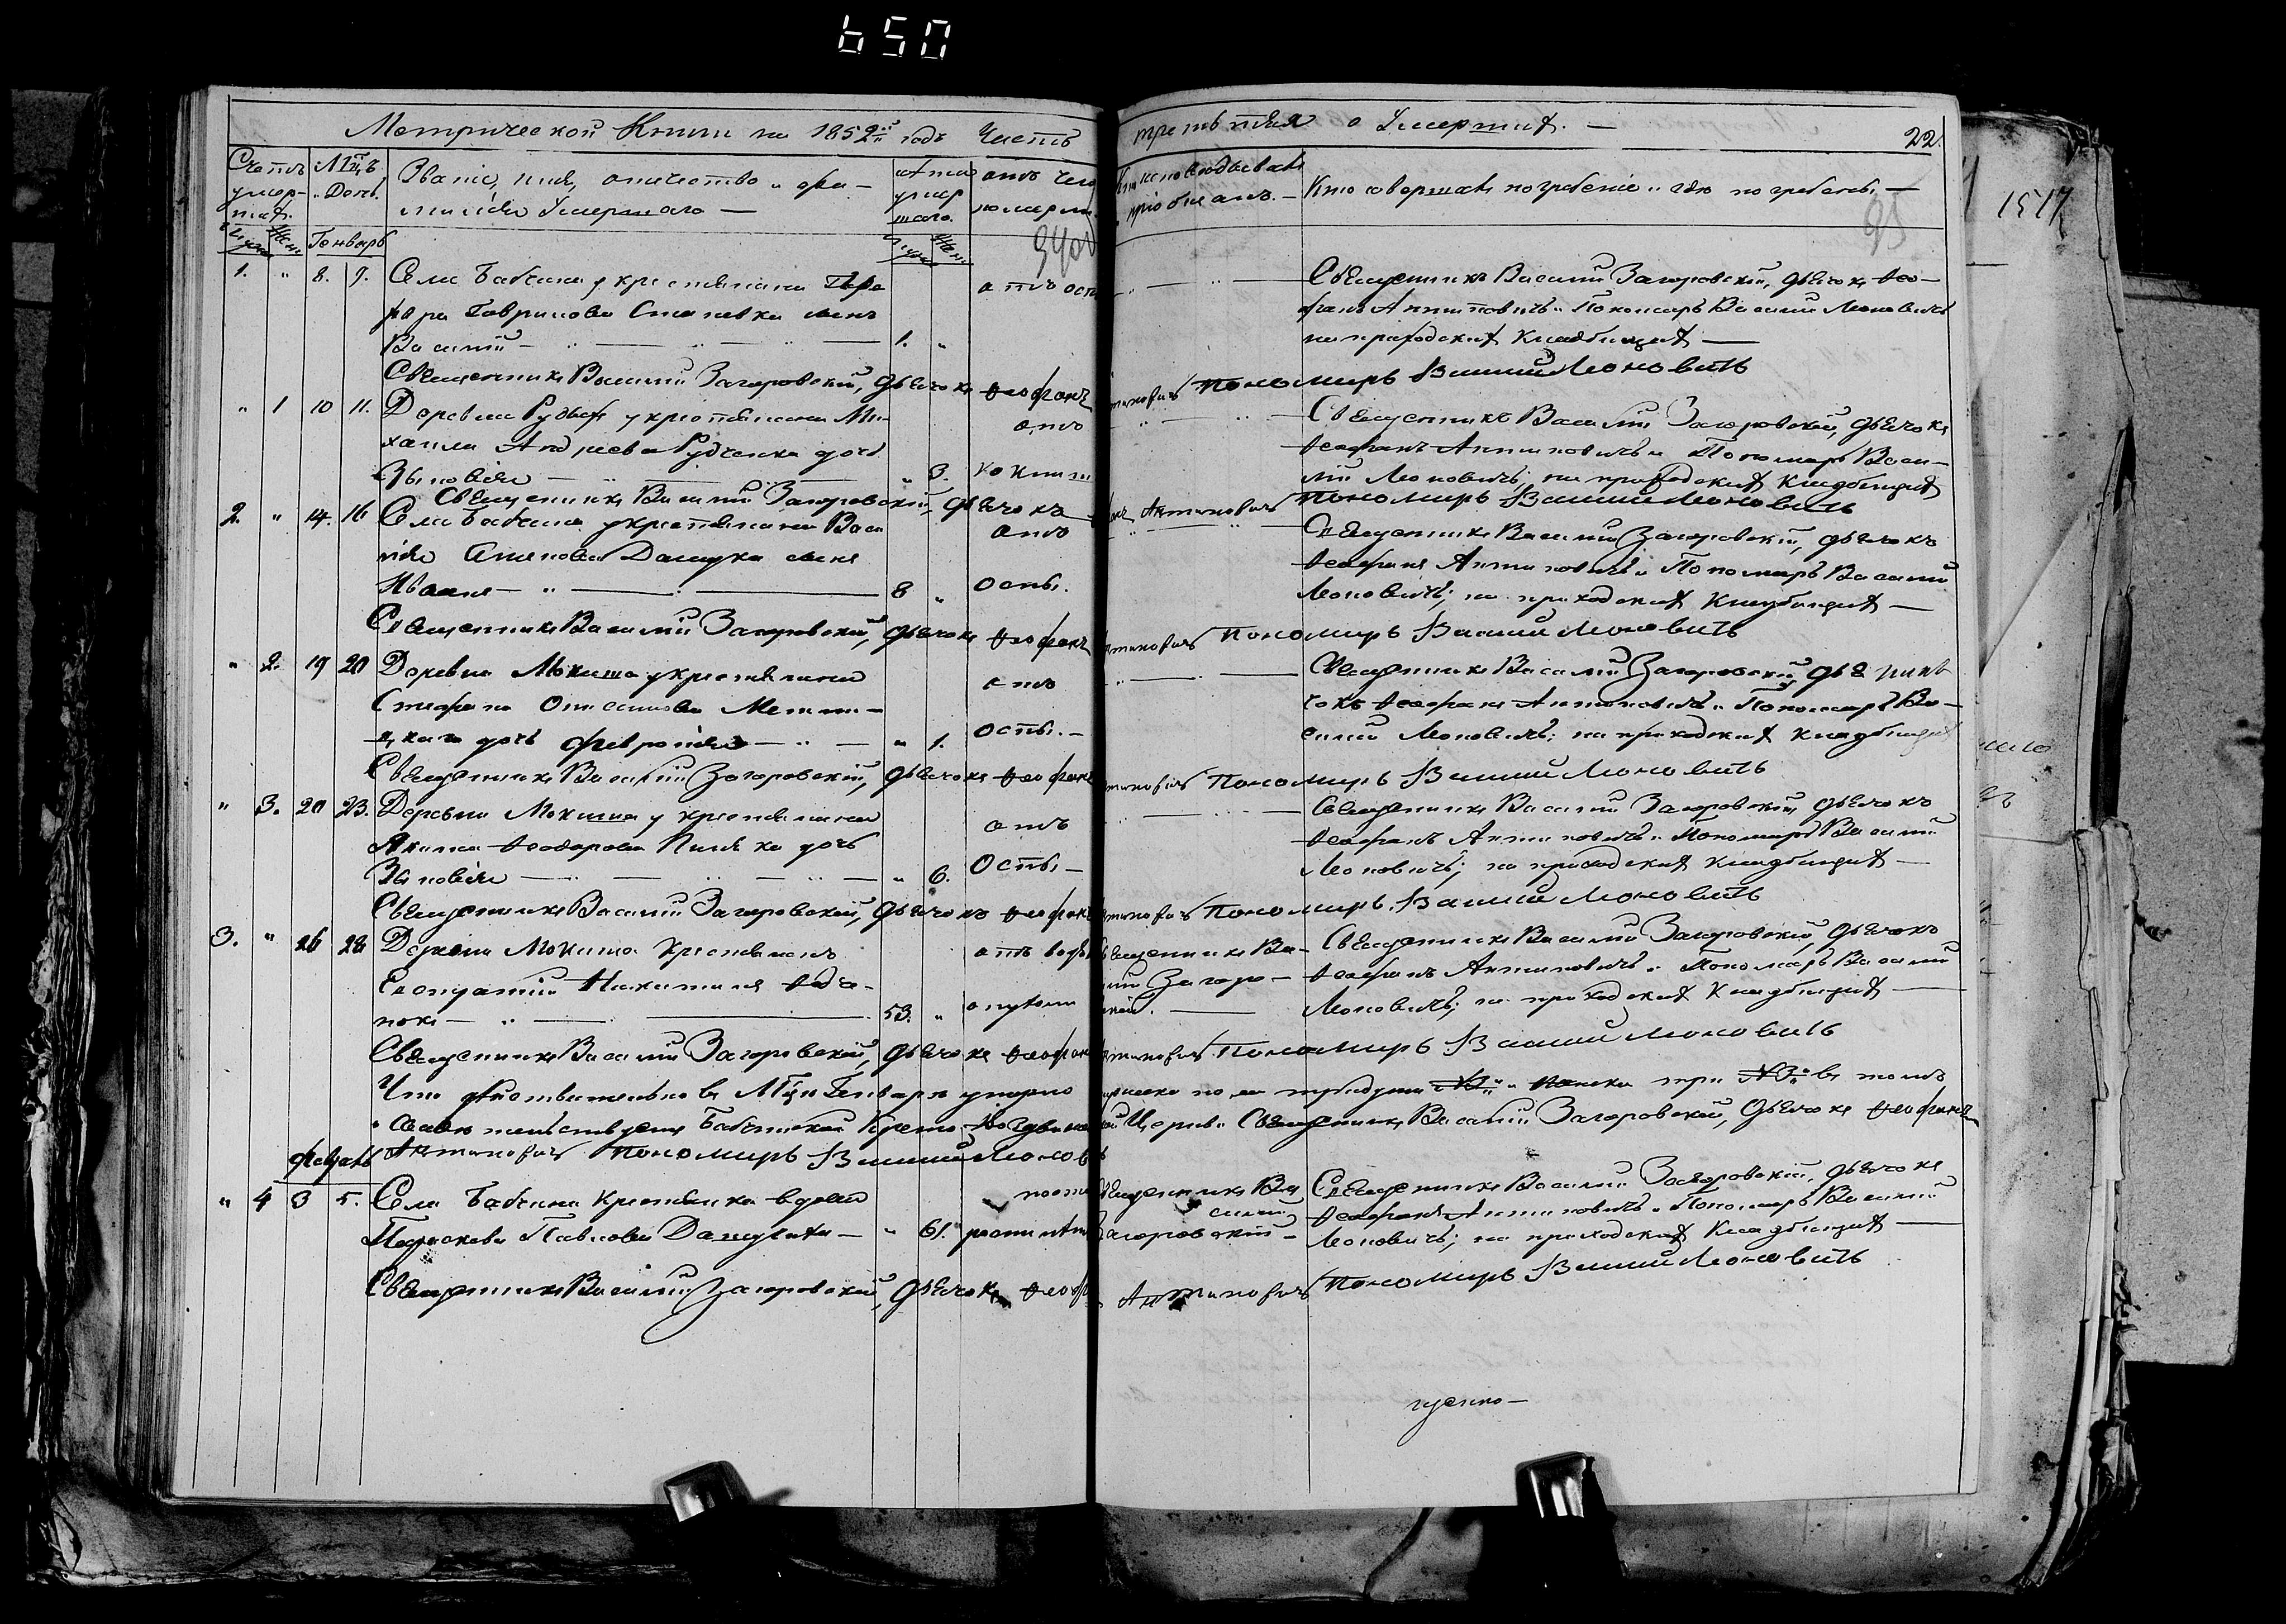 650
Метрической Книги на 1852й годъ Часть третьтяя о Умершихъ. — 22.
Счетъ умер-шихъ.
Мцъ. и День.
Званіе, имя, отчество и фа-
милія Умершаго —
лѣта умер шаго.
отъ чего померъ
Кто исповѣдывалъ и пріобщалъ. —
Кто совершалъ погребеніе и гдѣ погребены —
95
1517
Генварь
1. " 8. 9. Села Бабчина у крестьянина
Гаврилова сынъ
Василій — 1. "
отъ оспы
Священникъ Василій Загоровскій, дьячокъ Ѳео-
фанъ Антиповичъ и Пономарь Василій Лоновичъ
на приходскихъ Кладбищахъ —
Священникъ Василій Загоровскій, дьячокъ Ѳеофанъ Антиповичъ Пономарь Василий Лоновичь
" 1 10 11. Деревни у крестьянина Ми-
хаила Андреева Рудченка дочь
Зѣновія — " 3.
отъ
Священникъ Василій Загоровскій, дьячокъ
Ѳеофанъ Антиповичъ и Пономарь Васи-
лій Лоновичъ; на приходскихъ Кладбищахъ
Священникъ Василій Загоровскій, дьячокъ Антиповичъ Пономарь Василий Лоновичь
2. " 14. 16 Села Бабчина у крестьянина Васи
лія Дашука сынъ
Иванъ — 8 "
отъ
оспы.
Священникъ Василій Загоровскій, дьячокъ
Ѳеофанъ Антиповичъ и Пономарь Василій
Лоновичъ; на приходскихъ Кладбищахъ —
Священникъ Василій Загоровскій, дьячокъ Ѳеофанъ Антиповичъ Пономарь Василий Лоновичь
" 2. 19 20 Деревни Мокиша у крестьянина
Стефана
дочь Февронія — " 1.
отъ
оспы. —
Священникъ Василій Загоровскій, дья
чокъ Ѳеофанъ Антиповичъ и Пономарь Ва-
силій Лоновичъ; на приходскихъ кладбищахъ
Священникъ Василій Загоровскій, дьячокъ Ѳеофанъ Антиповичъ Пономарь Василий Лоновичь
" 3. 20 23. Деревни Мокиша у крестьянина
Якима Ѳеодорова дочь
Зѣновія — " 6.
отъ
Оспы —
Священникъ Василій Загоровскій, дьячокъ
Ѳеофанъ Антиповичъ и Пономарь Василій
Лоновичъ; на приходскихъ кладбищахъ —
Священникъ Василій Загоровскій, дьячокъ Ѳеофанъ Антиповичъ Пономарь Василий Лоновичь
3. " 26 28 Деревни Мокиша крестьянинъ
Никитинъ
53. "
отъ
опухоли
Священникъ Ва-
силій Загоро-
вскій. —
Священникъ Василій Загоровскій, дьячокъ
Ѳеофанъ Антиповичъ и Пономарь Василій
Лоновичъ; на приходскихъ Кладбищахъ —
Священникъ Василій Загоровскій, дьячокъ Ѳеофанъ Антиповичъ Пономарь Василий Лоновичь
Что дѣйствительно въ Мцѣ Генварѣ умерло мужеска полу три №3и и женска три №3и въ томъ
и Свидетельствуемъ Бабчинской Кресто-Воздвиженской Церкви Священникъ Василій Загоровскій, дьячокъ Ѳеофанъ
Антиповичъ Пономарь Василий Лоновичь
Февраль
" 4 3 5. Села Бабчина крестьянка вдова
Параскева Павлова Дашукова — " 61.
Священникъ Ва
силій
Загоровскій —
Священникъ Василій Загоровскій, дьячокъ
Ѳеофанъ Антиповичъ и Пономарь Василій
Лоновичъ; на приходскихъ Кладбищахъ —
Священникъ Василій Загоровскій, дьячокъ Антиповичъ Пономарь Василий Лоновичь